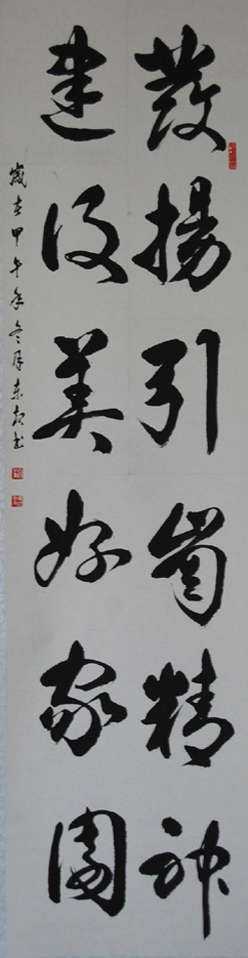 發揚引嵩精神
建设美好家園
歲在甲午年冬月東起书